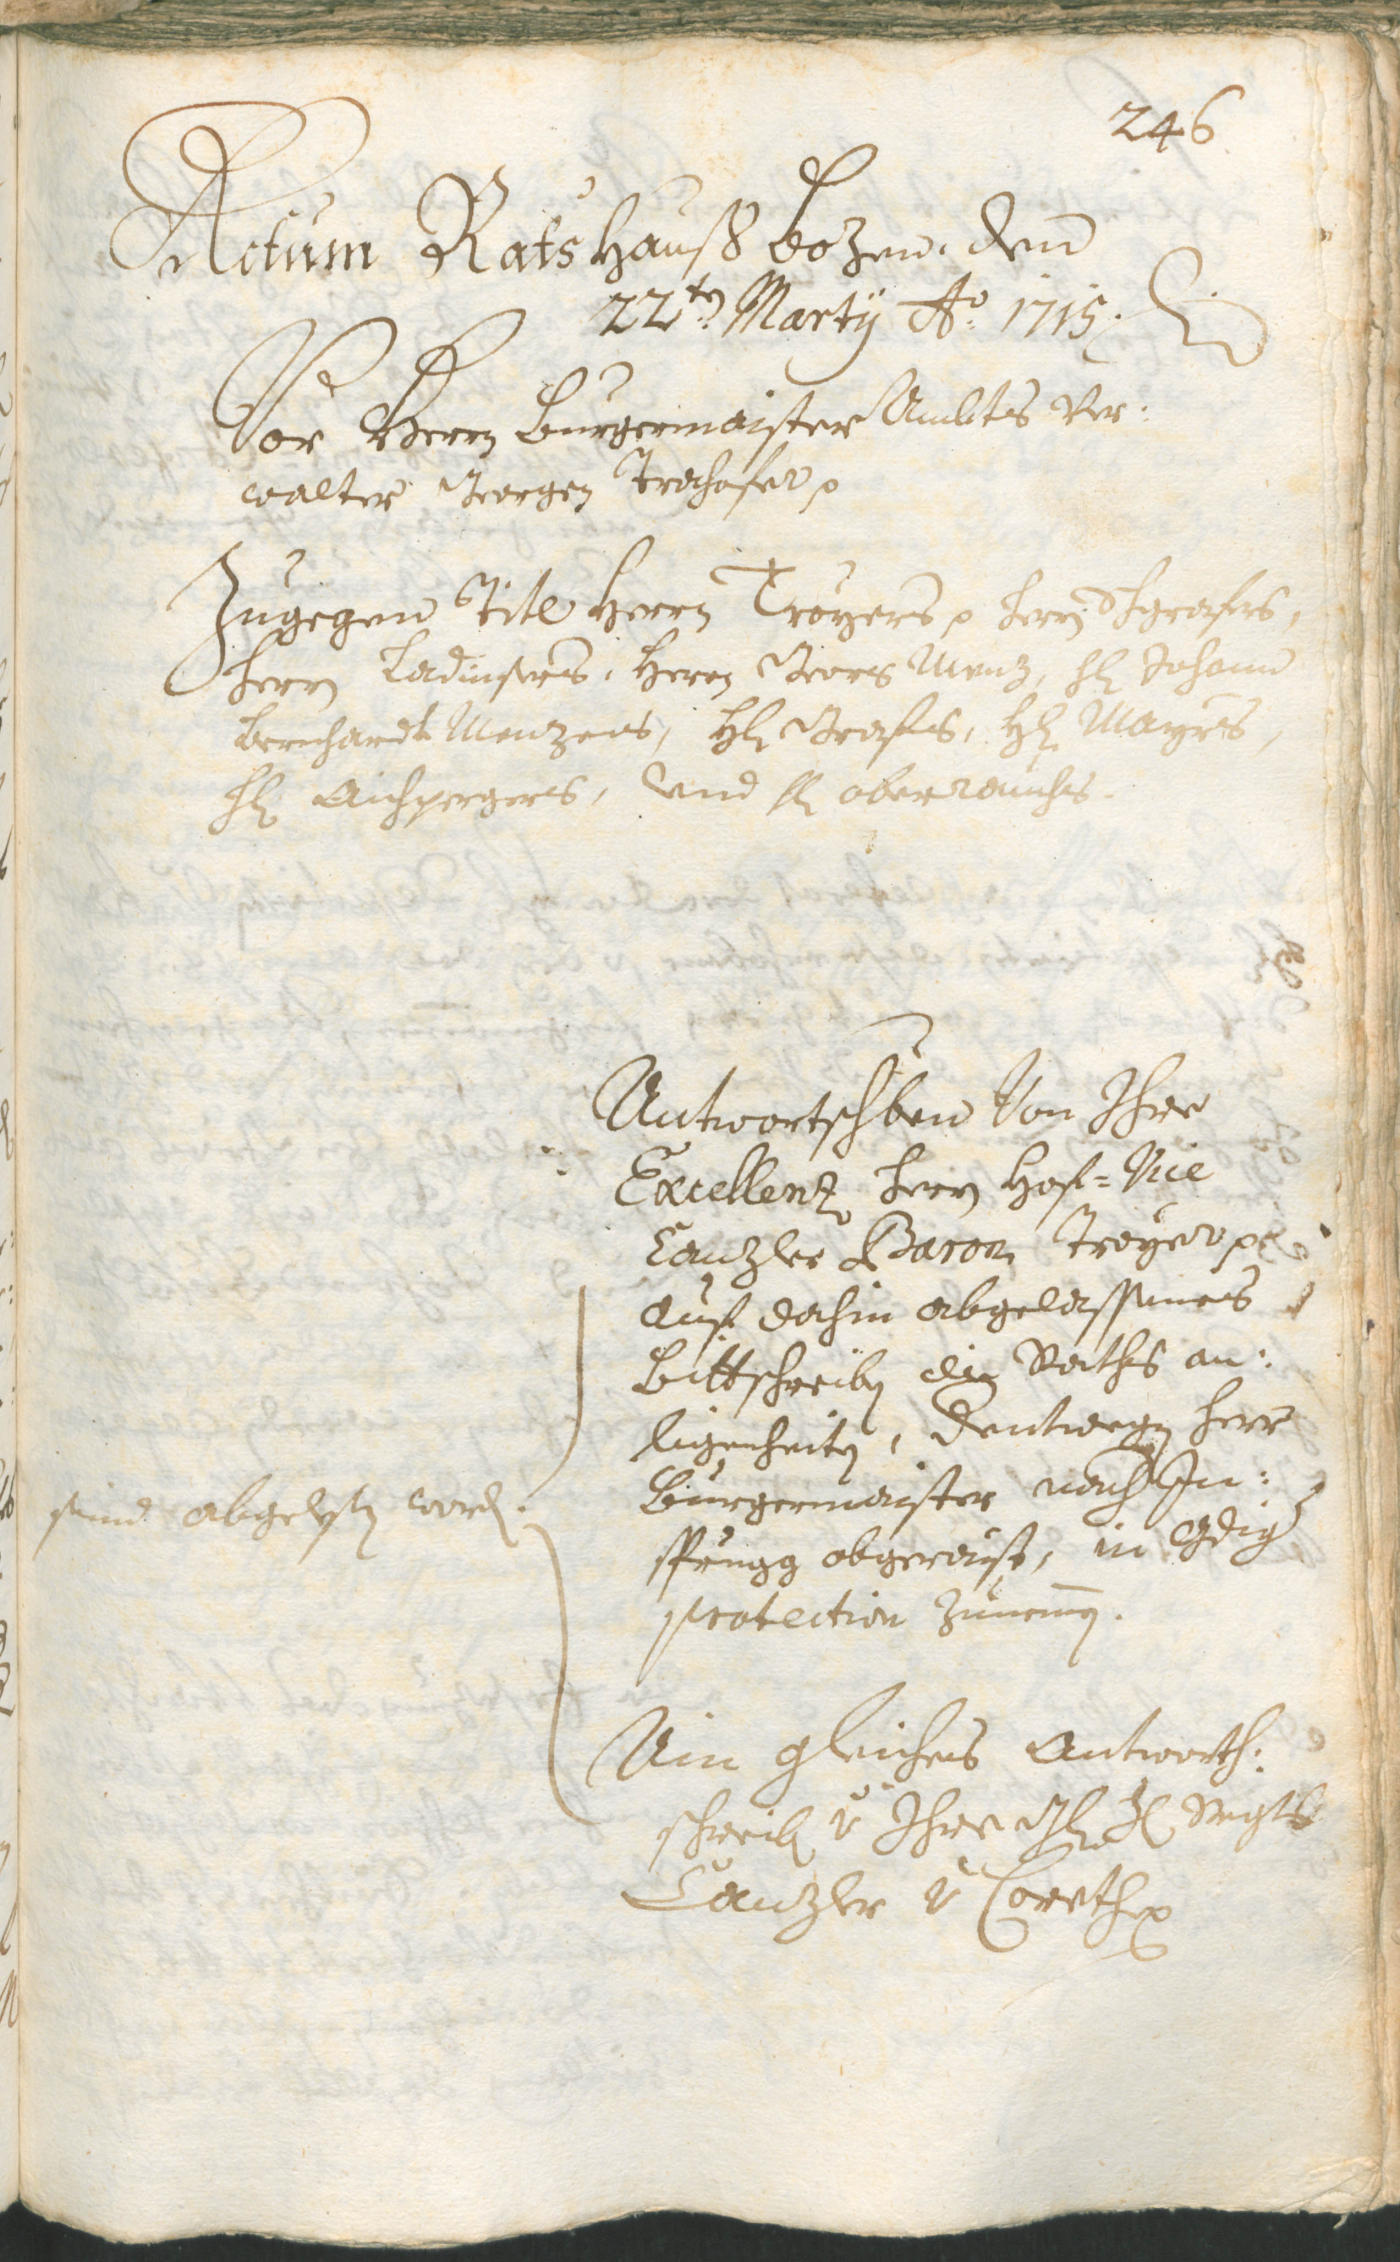 246
Actum Rats Hauß Bozen, den
22ten Marty Ao. 1715.
Vor Herrn Burgermaister Ambts Ver:
walter Georgen Trochofer p
Zugegen Titl Herrn Troyers p Herrn Schgrafers,
Herrn Ladinsers, Herrn Georg Menz, H: Johann
Bernhardt Menzens, H: Grafens, H: Mayrs,
H: Aichpergers, und H: oberrauchs.
Antwortschben Von Ihro
Excellenz Herrn Hof-Vice
Canzler Baron Troyer p
auf dahin abgelassenes
Bittschreiben die Raths an:
ligenheiten, dentwegen Herr
Burgermaister nach In:
sprugg abgeraist, in Gdige
protection zunemen.
Ain gleiches Antworth:
schreiben v: Ihro H: Regts
Canzler v: Coreth p
seind abgelesen word.